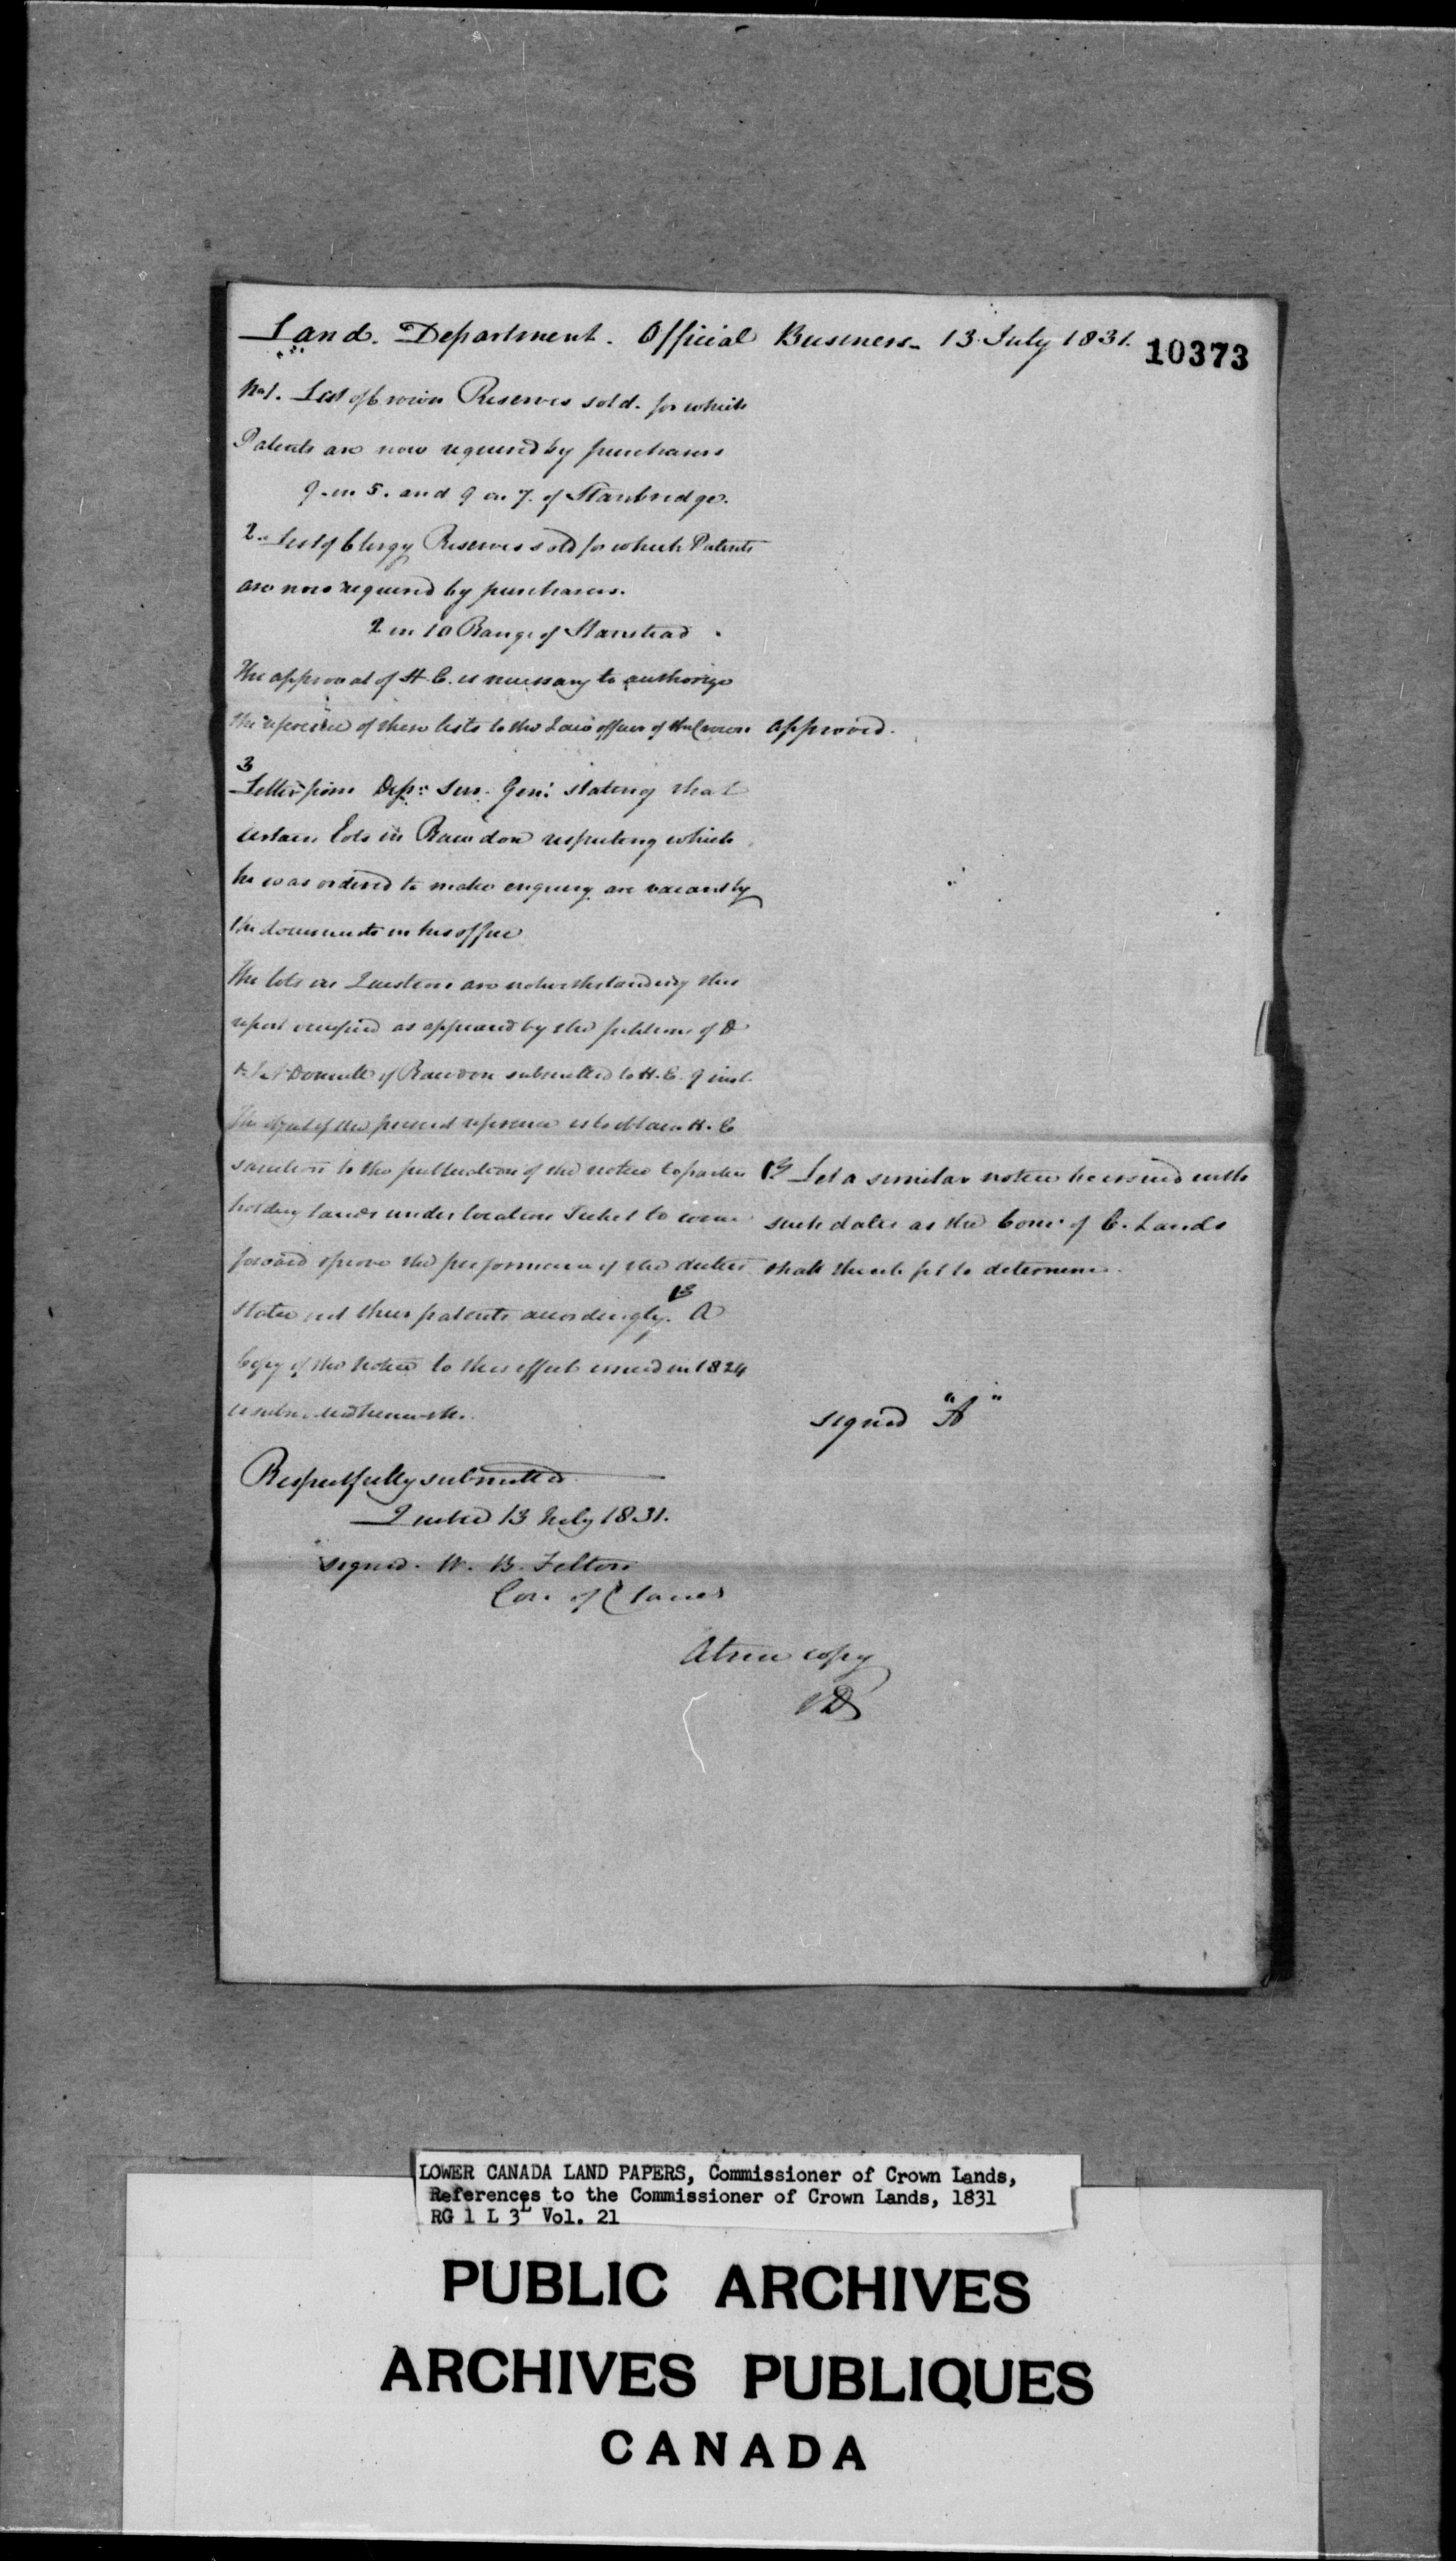 Land. Department. Official Business. 13 July 1831.
10373
No 1. List of Crown Reserves sold. for which
Patents are now required by purchasers
9 in 5. and 9 in 7. of Stanbridge.
2. List of Clergy Reserves sold for which Patents
are now required by purchasers.
2 in 10 Range of Stanstead.
The approval of H. E. is necessary to authorize
the reference of these lists to the Law officer of the Crown
approved.
3
Letter from Depy Sur. Genl stating that
certain Lots in Rawdon respecting which
he was ordered to make enquiry are vacant by
the documents in his office
The lots in Question are notwithstanding this
report occupied as appeared by the petitions of
of Rawdon submitted to H. E. 9 inst.
The object of the present reference is to obtain H. E
sanction to the publication of the notice to parties
holding lands under location Ticket to come
forward & prove the performance of the duties
their patents accordingly. B A
Copy of the notice to this effect issued in 1824
is submitted herewith.
B Let a similar notice be issued with
such dates as the Comr of C. Lands
shall think fit to determine.
signed "A"
Respectfully submitted
Quebec 13 July 1831.
signed. W. B. Felton
Com. of C Lands
A true copy
LOWER CANADA LAND PAPERS, Commissioner of Crown Lands,
References to the Commissioner of Crown Lands, 1831
RG 1 L 3L Vol. 21
PUBLIC ARCHIVES
ARCHIVES PUBLIQUES
CANADA